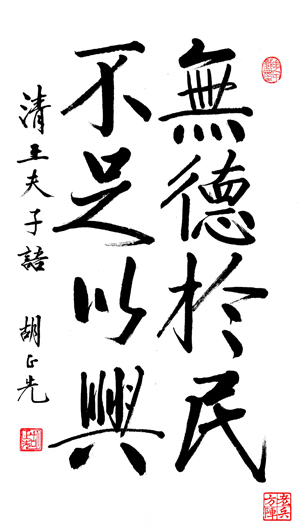 無德於民
不足以興
清王夫子語 胡正先
老兵方陣